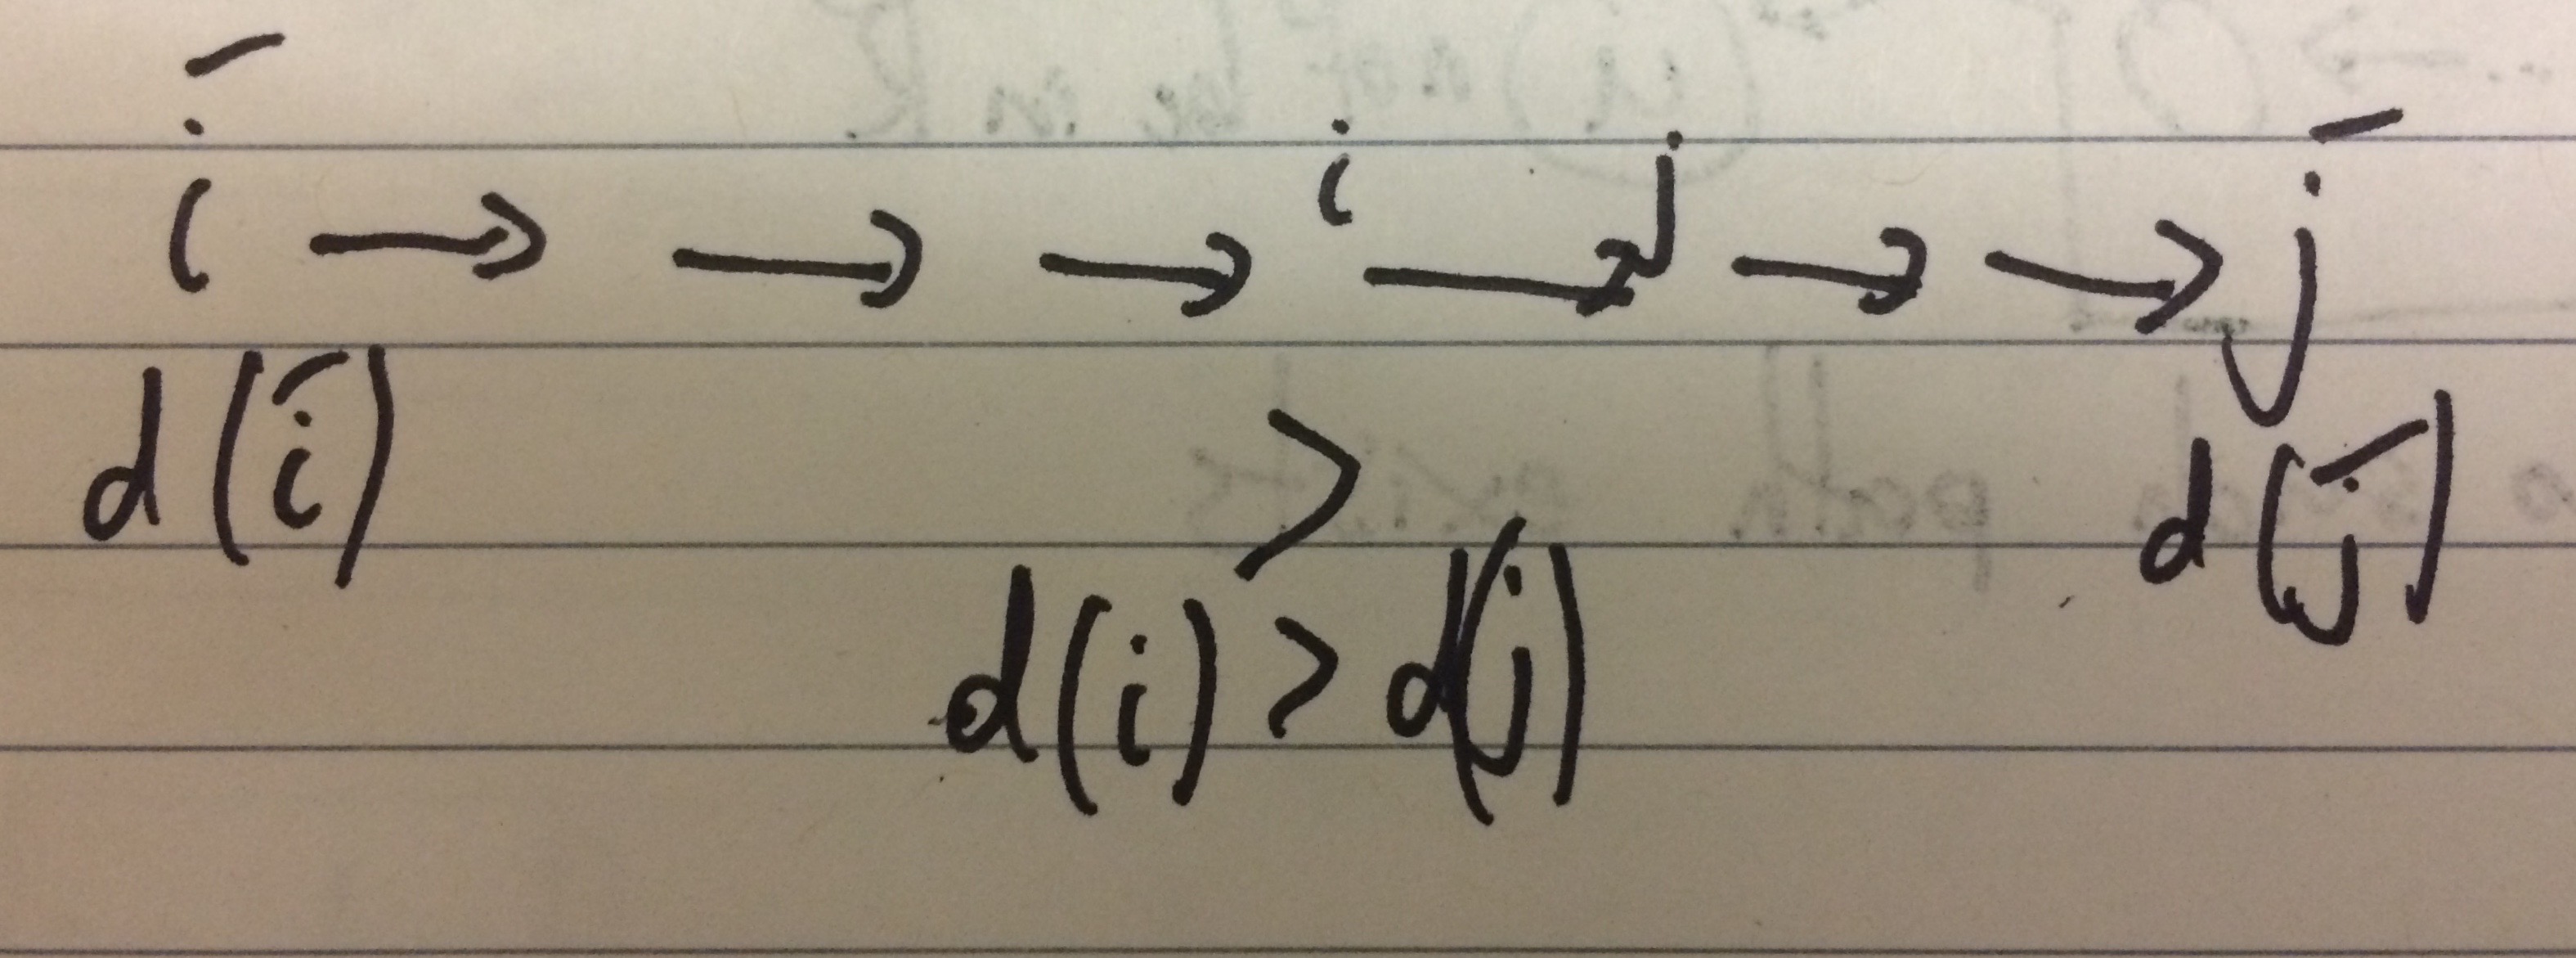 i̅ → → → i → j → → j̅
d(i̅) > d(j̅)
d(i) > d(j)